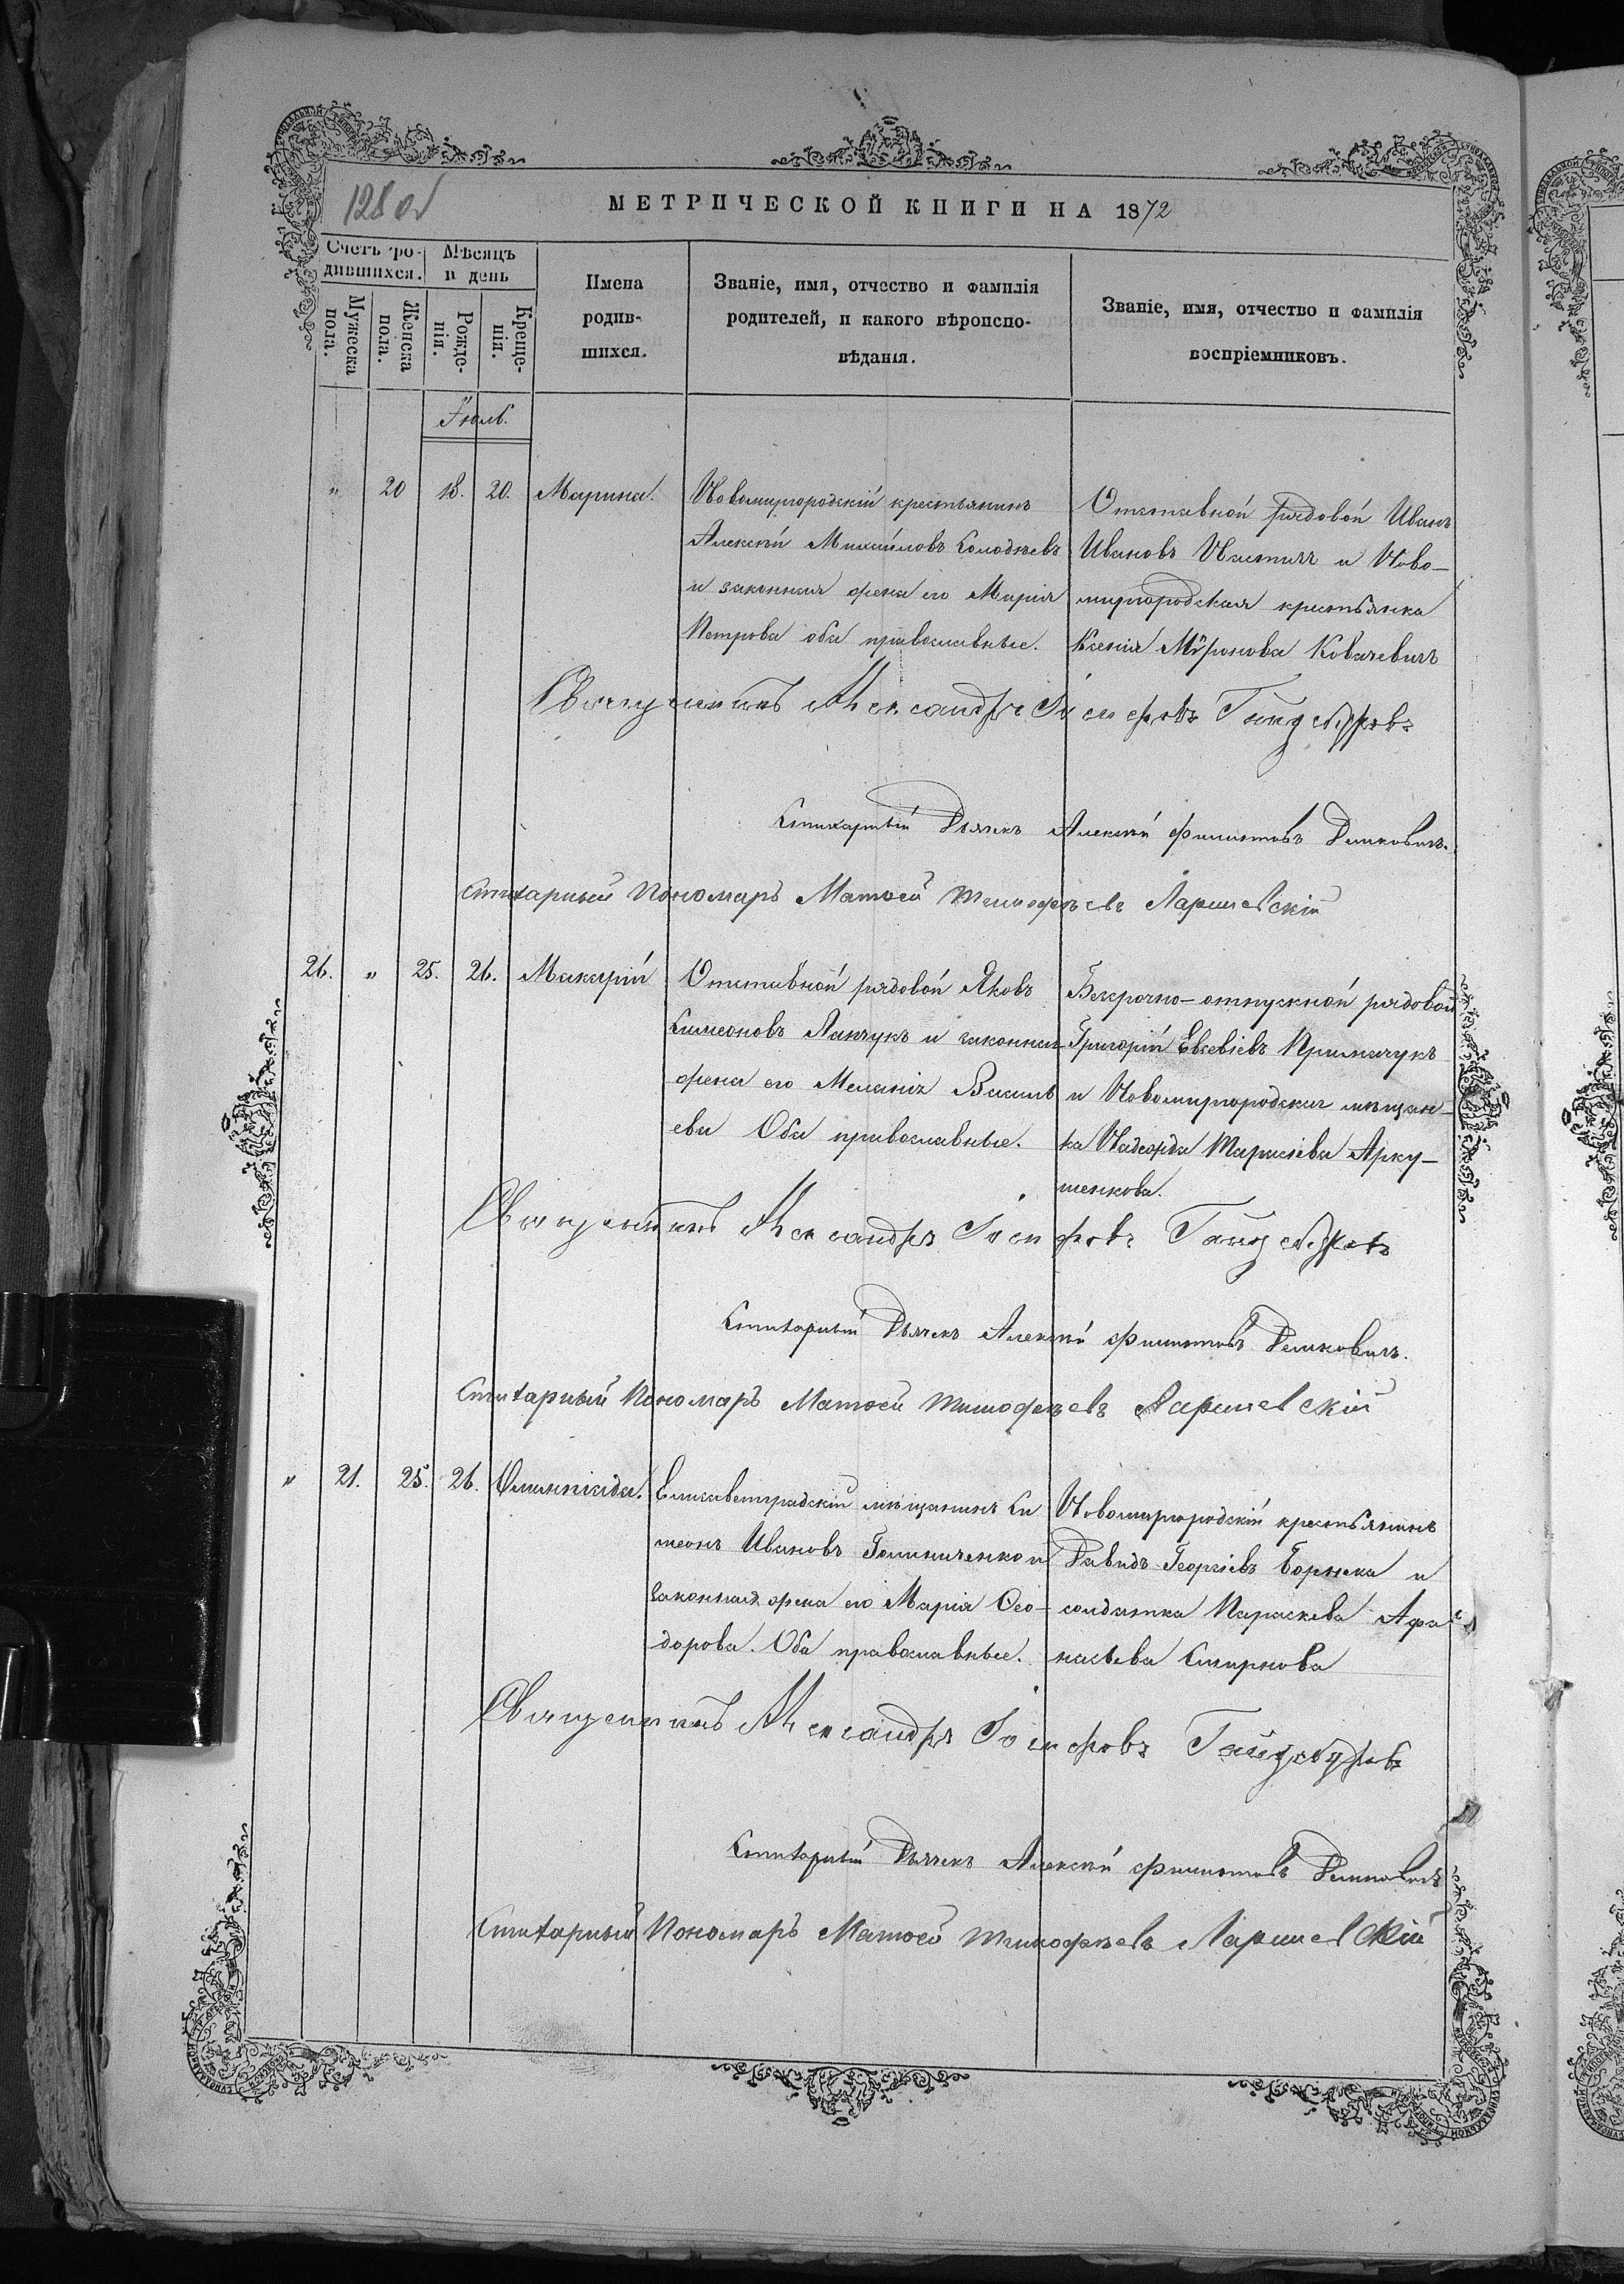 128 об
МЕТРИЧЕСКОЙ КНИГИ НА 1872
Счетъ ро-
дившихся.
Мѣсяцъ
и день
Мужеска
пола.
Женска
пола.
Рожде-
нія.
Креще-
нія.
Имена
родив-
шихся.
Званіе, имя, отчество и фамилія
родителей, и какого вѣроиспо-
вѣданія.
Званіе, имя, отчество и фамилія
воспріемниковъ.
Іюль.
" 20 18. 20. Марина.
Новомиргородскій крестьянинъ
Алексѣй Михайловъ Солодѣевъ
и законная жена его Марія
Петрова оба православные.
Отставной рядовой Иванъ
Ивановъ и Ново-
миргородская крестьянка
Ксенія Мѵронова Ковачевичъ
Священникъ Александръ Іосифовъ Гайдебуровъ
Стихарный Дьячекъ Алексѣй Филиповъ Демковичъ.
Стихарный Пономарь Матѳей Тимофѣевъ Ларшевскій
26. " 25. 26. Макарій
Отставной рядовой Яковъ
Симеоновъ Ланчукъ и законная
жена его Меланія Василь
ева Оба православные.
Безсрочно-отпускной рядовой
Григорій Евсевіевъ Примачукъ
и Новомиргородская мѣщан-
ка Надежда Тарасіева Арку-
шенкова.
Священникъ Александръ Іосифовъ Гайдебуровъ
Стихарный Дьячекъ Алексѣй Филиповъ Демковичъ.
Стихарный Пономарь Матѳей Тимофѣевъ Ларшевскій
" 21. 25. 26. Олимпіада.
Елисаветградскій мѣщанинъ Си
меонъ Ивановъ Голиниченко и
законная жена его Марія Ѳео-
дорова. Оба православные.
Новомиргородскій крестьянинъ
Давидъ Георгіевъ и
солдатка Параскева Афа
насьева Смирнова
Священникъ Александръ Іосифовъ Гайдебуровъ
Стихарный Дьячекъ Алексѣй Филиповъ Демковичъ
Стихарный Пономарь Матѳей Тимофѣевъ Ларшевскій